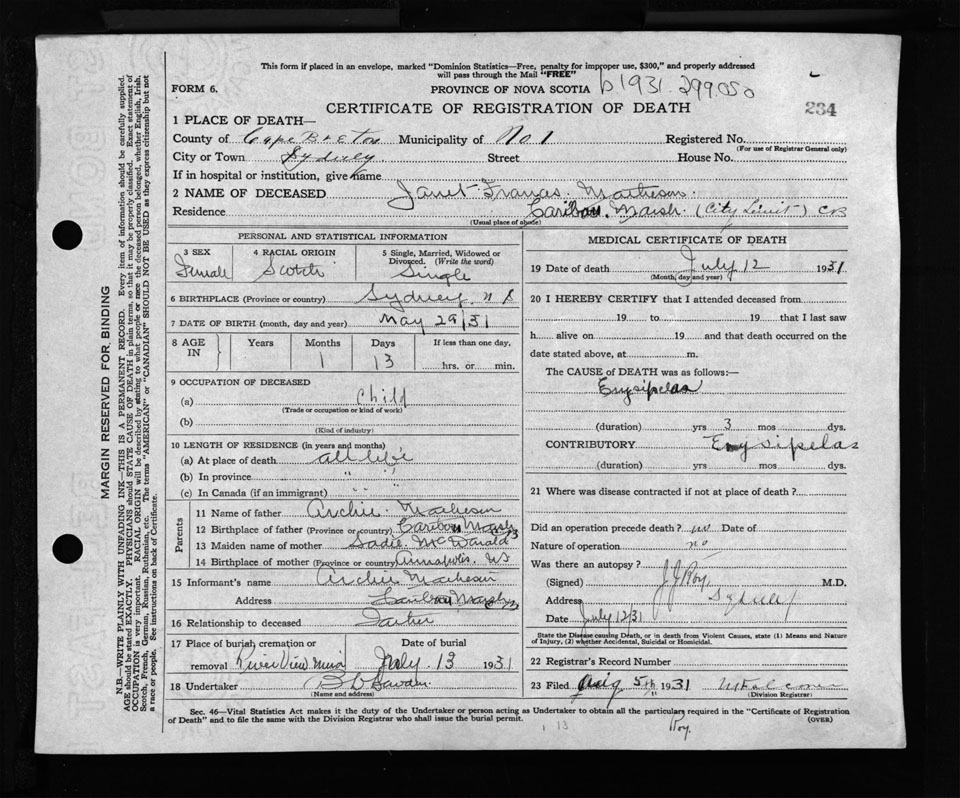 This form if placed in an envelope, marked "Dominion Statistics—Free, penalty for improper use, $300," and properly addressed
will pass through the Mail "FREE"
FORM 6.
PROVINCE OF NOVA SCOTIA b 1931. 299.050
CERTIFICATE OF REGISTRATION OF DEATH
234
1 PLACE OF DEATH—
County of Cape Breton Municipality of No 1 Registered No.
(For use of Registrar General only)
City or Town Sydney Street House No.
If in hospital or institution, give name
2 NAME OF DECEASED Janet Frances Matheson
Residence Caribou Marsh (City Limit) CB
(Usual place of abode)
PERSONAL AND STATISTICAL INFORMATION
3 SEX 4 RACIAL ORIGIN 5 Single, Married, Widowed or
Divorced. (Write the word)
Female Scotch Single
6 BIRTHPLACE (Province or country) Sydney, N S
7 DATE OF BIRTH (month, day and year) May 29/31
8 AGE IN Years Months Days If less than one day,
1 13 hrs. or min.
9 OCCUPATION OF DECEASED
(a) Child
(Trade or occupation or kind of work)
(b)
(Kind of industry)
10 LENGTH OF RESIDENCE (in years and months)
(a) At place of death all life
(b) In province " "
(c) In Canada (if an immigrant) " "
Parents
11 Name of father Archie Matheson
12 Birthplace of father (Province or country) Caribou Marsh CB
13 Maiden name of mother Sadie McDonald
14 Birthplace of mother (Province or country) Annapolis, NS
15 Informant's name Archie Matheson
Address Caribou Marsh
16 Relationship to deceased Father
17 Place of burial, cremation or Date of burial
removal River View Mira July 13 1931
18 Undertaker
(Name and address)
MEDICAL CERTIFICATE OF DEATH
19 Date of death July 12 1931
(Month, day and year)
20 I HEREBY CERTIFY that I attended deceased from
19 to 19 that I last saw
h alive on 19 and that death occurred on the
date stated above, at m.
The CAUSE of DEATH was as follows:—
Erysipelas
(duration) yrs 3 mos dys.
CONTRIBUTORY Erysipelas
(duration) yrs mos dys.
21 Where was disease contracted if not at place of death?
Did an operation precede death? no Date of
Nature of operation no
Was there an autopsy?
(Signed) J J Roy M.D.
Address Sydney
Date July 12/31
State the Disease causing Death, or in death from Violent Causes, state (1) Means and Nature
of Injury, (2) whether Accidental, Suicidal or Homicidal.
22 Registrar's Record Number
23 Filed Aug 5th 1931
(Division Registrar)
Sec. 46—Vital Statistics Act makes it the duty of the Undertaker or person acting as Undertaker to obtain all the particulars required in the "Certificate of Registration
of Death" and to file the same with the Division Registrar who shall issue the burial permit. (OVER)
13 Roy.
MARGIN RESERVED FOR BINDING
N.B.—WRITE PLAINLY WITH UNFADING INK—THIS IS A PERMANENT RECORD. Every item of information should be carefully supplied.
AGE should be stated EXACTLY. PHYSICIANS should STATE CAUSE OF DEATH in plain terms, so that it may be properly classified. Exact statement of
OCCUPATION is very important. RACIAL ORIGIN will be described by stating to what people or race the deceased person belonged, whether English, Irish,
Scotch, French, German, Russian, Ruthenian, etc. The terms "AMERICAN" or "CANADIAN" SHOULD NOT BE USED as they express citizenship but not
a race or people. See instructions on back of Certificate.